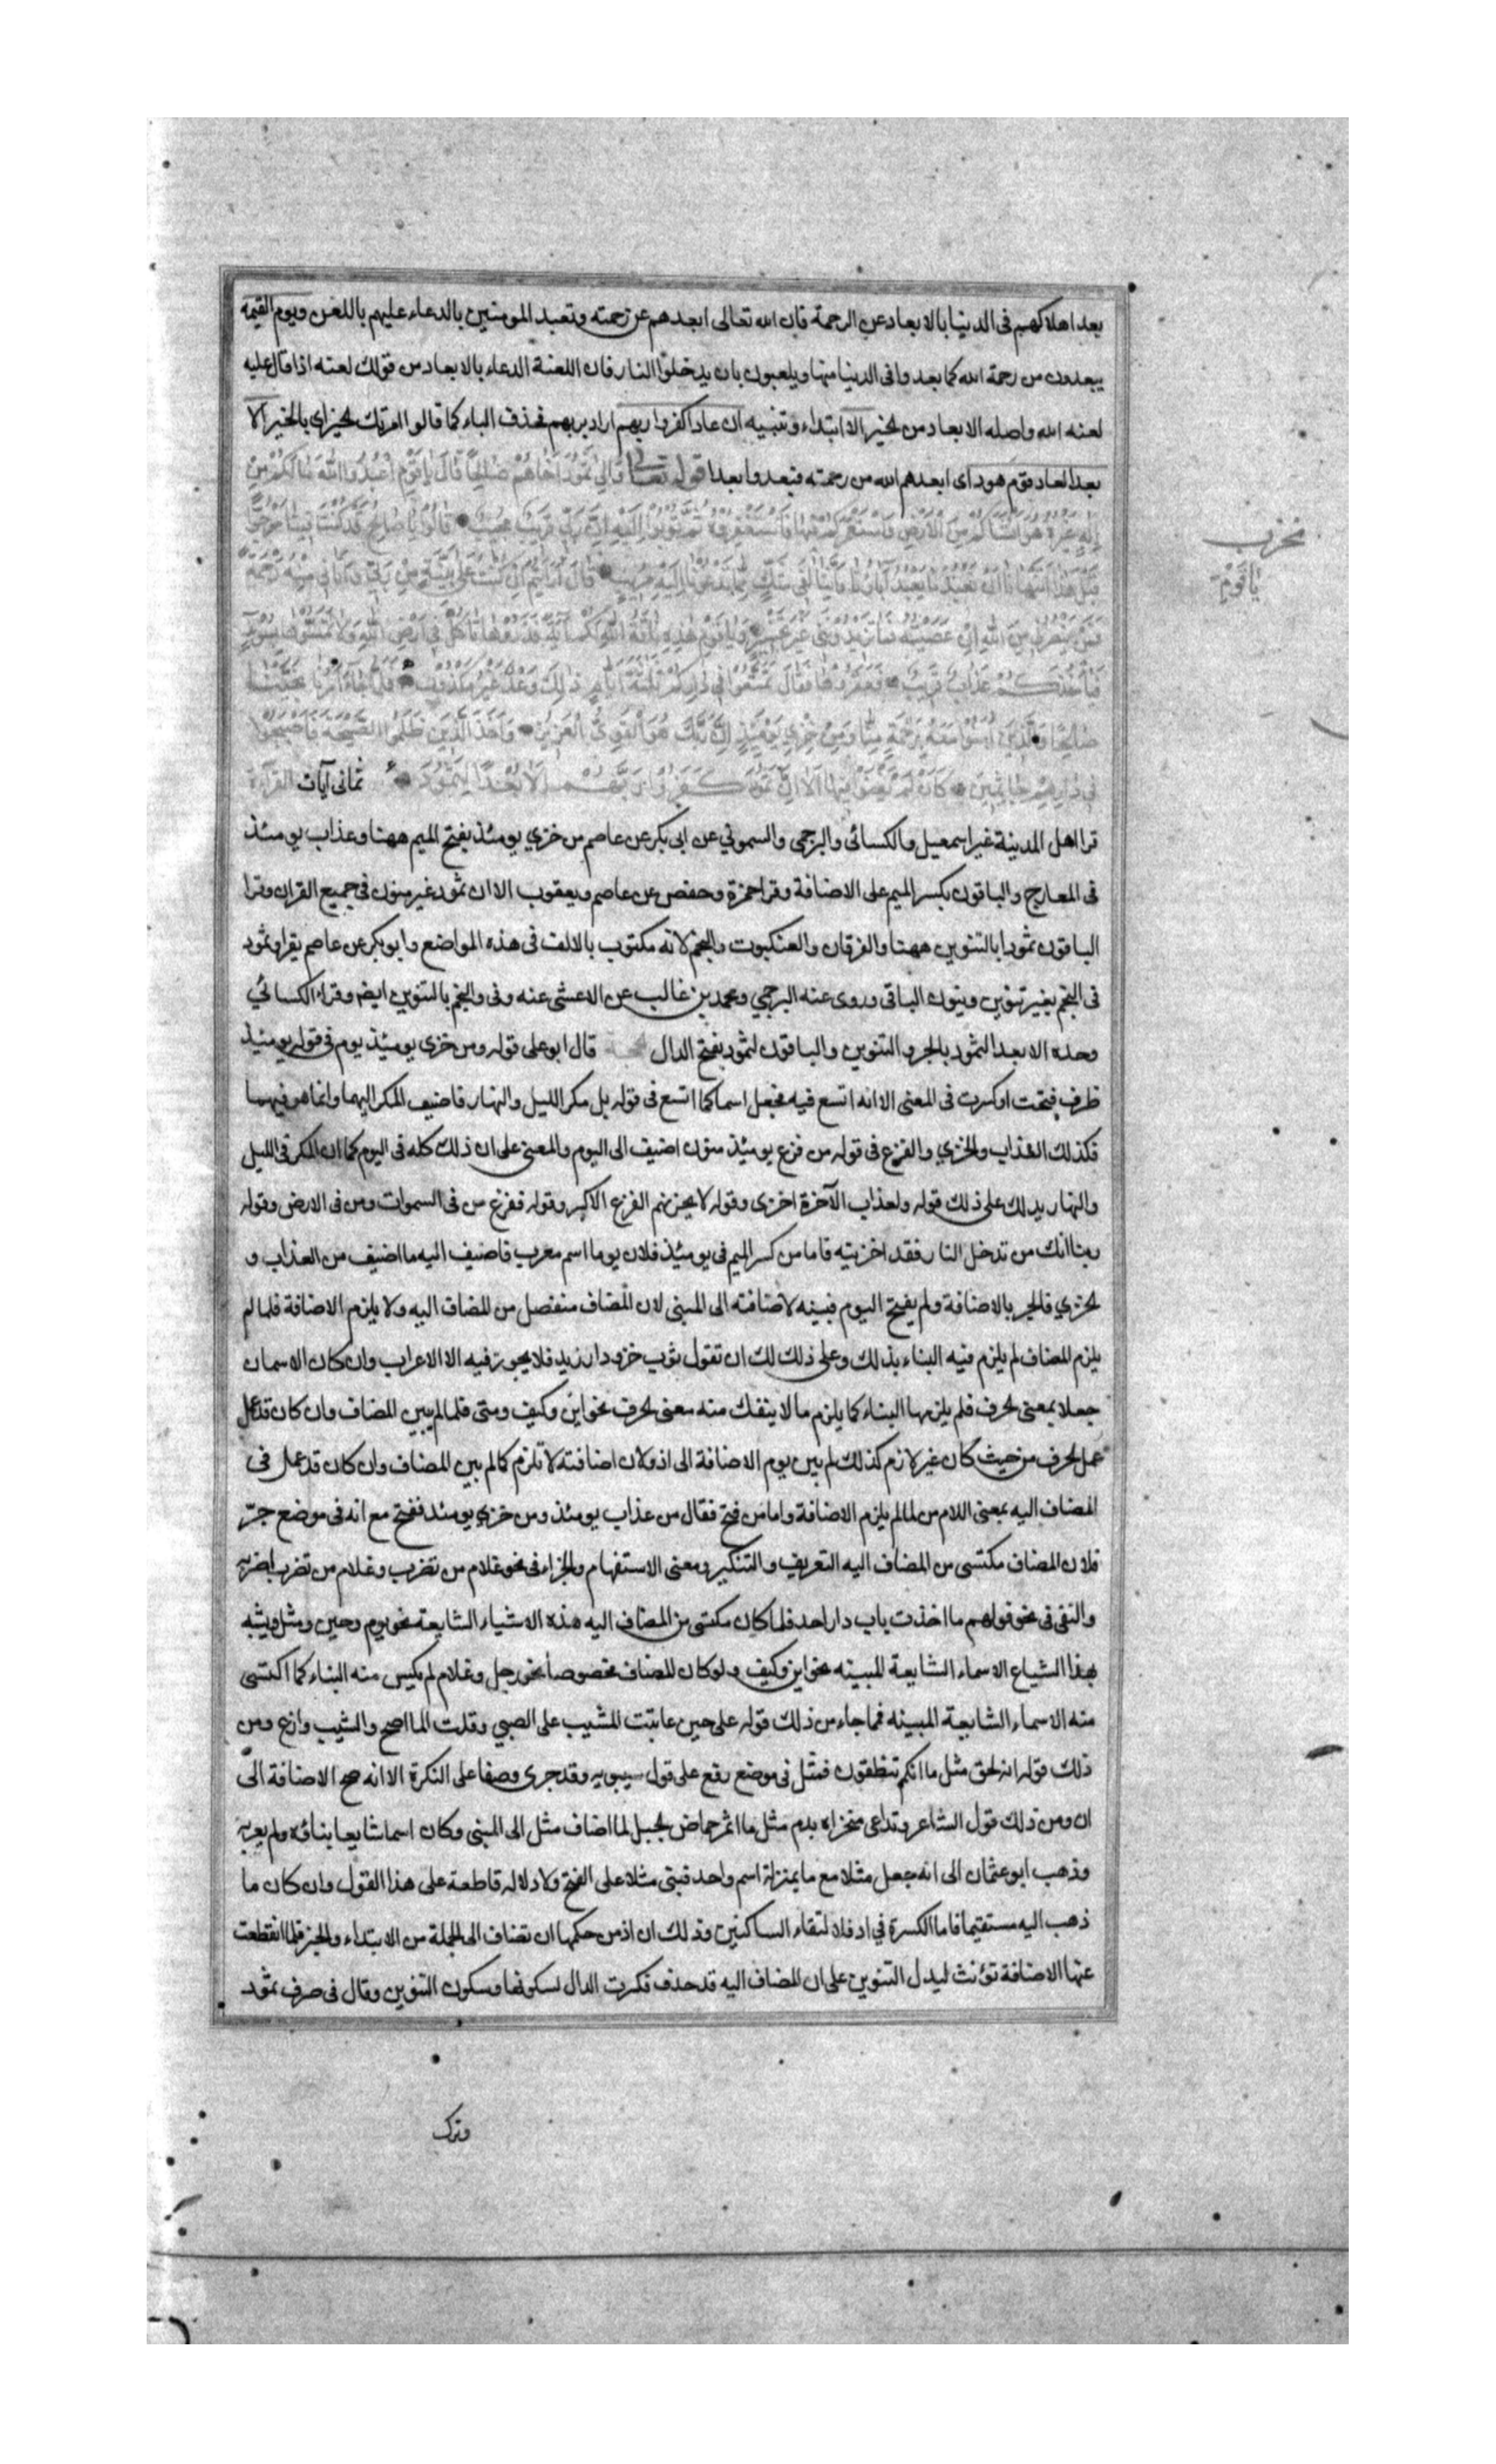 بعد اهلاكهم فى الدينا بالابعاد عن الرحمة فان الله تعالى ابعدهم عن رحمته وتعبد المومنين بالدعاء عليهم باللعن ويوم القيمة
يبعدون من رحمة الله كما بعدوا فى الدنيا منها ويلعبون بان يدخلوا النار فان اللعنة الدعاء بالابعاد من قولك لعنه اذا قال عليه
لعنه الله واصله الابعاد من الخير الا ابتداء وتنبيه ان عادا كفروا ربهم اراد بربهم فحذف الباء كما قالوا امرتك الخير اى بالخير الا
بعدا لعاد قوم هود اى ابعدهم الله من رحمته فبعدوا بعدا قوله تعالى وَاِلىٰ ثَمُودَ اَخَاهُمْ صَالِحًا قَالَ يَا قَوْمِ اعْبُدُوا اللّٰهَ مَا لَكُمْ مِنْ
اِلٰهٍ غَيْرُهُ هُوَ اَنْشَاَكُمْ مِنَ الْاَرْضِ وَاسْتَعْمَرَكُمْ فِيهَا فَاسْتَغْفِرُوهُ ثُمَّ تُوبُوا اِلَيْهِ اِنَّ رَبِّى قَرِيبٌ مُجِيبٌ قَالُوا يَا صَالِحُ قَدْ كُنْتَ فِينَا مَرْجُوًّا
قَبْلَ هٰذَا اَتَنْهَانَا اَنْ نَعْبُدَ مَا يَعْبُدُ آبَاؤُنَا وَاِنَّنَا لَفِى شَكٍّ مِمَّا تَدْعُونَا اِلَيْهِ مُرِيبٍ قَالَ يَا قَوْمِ اَرَاَيْتُمْ اِنْ كُنْتُ عَلىٰ بَيِّنَةٍ مِنْ رَبِّى وَآتَانِى مِنْهُ رَحْمَةً
فَمَنْ يَنْصُرُنِى مِنَ اللّٰهِ اِنْ عَصَيْتُهُ فَمَا تَزِيدُونَنِى غَيْرَ تَخْسِيرٍ وَيَا قَوْمِ هٰذِهِ نَاقَةُ اللّٰهِ لَكُمْ آيَةً فَذَرُوهَا تَاْكُلْ فِى اَرْضِ اللّٰهِ وَلَا تَمَسُّوهَا بِسُوءٍ
فَيَاْخُذَكُمْ عَذَابٌ قَرِيبٌ فَعَقَرُوهَا فَقَالَ تَمَتَّعُوا فِى دَارِكُمْ ثَلٰثَةَ اَيَّامٍ ذٰلِكَ وَعْدٌ غَيْرُ مَكْذُوبٍ فَلَمَّا جَاءَ اَمْرُنَا نَجَّيْنَا
صَالِحًا وَالَّذِينَ آمَنُوا مَعَهُ بِرَحْمَةٍ مِنَّا وَمِنْ خِزْىِ يَوْمَئِذٍ اِنَّ رَبَّكَ هُوَ الْقَوِىُّ الْعَزِيزُ وَاَخَذَ الَّذِينَ ظَلَمُوا الصَّيْحَةُ فَاَصْبَحُوا
فِى دِيَارِهِمْ جَاثِمِينَ كَاَنْ لَمْ يَغْنَوْا فِيهَا اَلَا اِنَّ ثَمُودَ كَفَرُوا رَبَّهُمْ اَلَا بُعْدًا لِثَمُودَ ثمانى آيات القرآءة
قرا اهل المدينة غير اسمعيل والكسائى والبرجمى والسمونى عن ابى بكر عن عاصم من خزي يومئذ بفتح الميم ههنا وعذاب يومئذ
فى المعارج والباقون بكسر الميم على الاضافة وقرا حمزة وحفص عن عاصم ويعقوب الا ان ثمود غير منون فى جميع القران وقرا
الباقون ثمودا بالتنوين ههنا والفرقان والعنكبوت والنجم لانه مكتوب بالالف فى هذه المواضع وابو بكر عن عاصم يقرا وثمود
فى النجم بغير تنوين وينون الباقى وروى عنه البرجمي ومحمد بن غالب عن الاعشى عنه وفى والنجم بالتنوين ايضا وقراء الكسائي
وحده الا بعدا لثمود بالجر والتنوين والباقون لثمود بفتح الدال قال ابو على قوله ومن خزى يومئذ يوم فى قوله يومئذ
ظرف فتحت او كسرت فى المعنى الا انه اتسع فيه فجعل اسما كما اتسع فى قوله بل مكر الليل والنهار فاضيف المكر اليهما وانما هو فيهما
فكذلك العذاب والخزي والفزع فى قوله من فزع يومئذ منون اضيف الى اليوم والمعنى على ان ذلك كله فى اليوم كما ان المكر فى الليل
والنهار يدلك على ذلك قوله ولعذاب الآخرة اخزى وقوله لا يحزنهم الفزع الاكبر وقوله ففزع من فى السموات ومن فى الارض وقوله
ربنا انك من تدخل النار فقد اخزيته فاما من كسر الميم فى يومئذ فلان يوما اسم معرب فاضيف اليه ما اضيف من العذاب و
الخزي فالجر بالاضافة ولم يفتح اليوم فبينه لاضافته الى المبنى لان المضاف منفصل من المضاف اليه ولا يلزم الاضافة فلما لم
يلزم المضاف لم يلزم فيه البناء بذلك وعلى ذلك لك ان تقول ثوب خز ودار زيد فلا يجوز فيه الا الاعراب وان كان الاسمان
جعلا بمعنى الحرف فلم يلزمها البناء كما يلزم ما لا ينفك منه معنى الحرف نحو اين وكيف ومتى فلما لم يبين المضاف وان كان قد عمل
عمل الحرف من حيث كان غير لازم كذلك لم يبين يوم الاضافة الى اذ ولان اضافته لا تلزم كما لم يبين المضاف وان كان قد عمل فى
المضاف اليه بمعنى اللام من لما لم يلزم الاضافة واما من فتح فقال من عذاب يومئذ ومن خزي يومئذ ففتح مع انه فى موضع جرّ
فلان المضاف مكتسى من المضاف اليه التعريف والتنكير ومعنى الاستفهام والجزاء فى نحو غلام من تضرب وغلام من تضرب اضربه
والنفى فى نحو قولهم ما اخذت باب دار احد فلما كان مكتسى من المضاف اليه هذه الاشياء الشايعة نحو يوم وحين ومثل ويشبه
بهذا الشياع الاسماء الشايعة المبينه نحو اين وكيف ولو كان المضاف مخصوصا نحو رجل وغلام لم يكيس منه البناء كما اكتسى
منه الاسماء الشايعة المبينه فما جاء من ذلك قوله على حين عاتبت المشيب على الصبي وقلت الما اصح والشيب وازع ومن
ذلك قوله انه لحق مثل ما انكم تنطقون فمثل فى موضع رفع على قول سيبويه وقد جرى وصفا على النكرة الا انه صح الاضافة الى
ان ومن ذلك قول الشاعر وتداعى منخراه بدم مثل ما اثمر حماض الجبل لما اضاف مثل الى المبنى وكان اسما شايعا بناؤه ولم يعربه
وذهب ابو عثمان الى انه جعل مثلا مع ما بمنزلة اسم واحد فبنى مثلا على الفتح ولا دلاله قاطعة على هذا القول وان كان ما
ذهب اليه مستقيما فاما الكسرة في اذ فلالتقاء الساكنين وذلك ان اذ من حكمها ان تضاف الى الجملة من الابتداء والخبر فلما انقطعت
عنها الاضافة تؤنث ليدل التنوين على ان المضاف اليه قد حذف فكرت الدال لسكونها وسكون التنوين وقال فى صرف ثمود
وترك
يا قوم